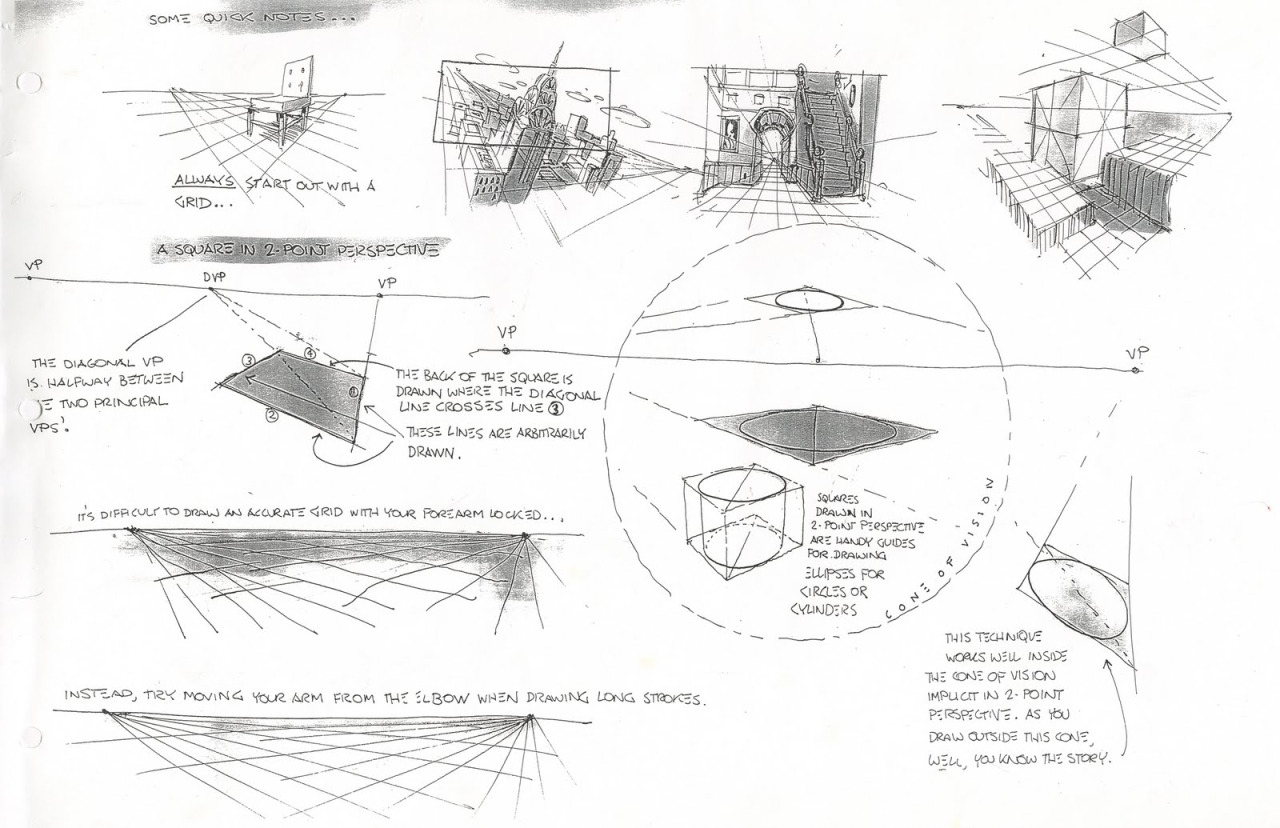 SOME QUICK NOTES...
ALWAYS START OUT WITH A
GRID...
A SQUARE IN 2-POINT PERSPECTIVE
VP
DVP
VP
THE DIAGONAL VP
IS HALFWAY BETWEEN
E TWO PRINCIPAL
VPS'.
3
4
1
2
THE BACK OF THE SQUARE IS
DRAWN WHERE THE DIAGONAL
LINE CROSSES LINE 3
THESE LINES ARE ARBITRARILY
DRAWN.
VP
VP
SQUARES
DRAWN IN
2-POINT PERSPECTIVE
ARE HANDY GUIDES
FOR DRAWING
ELLIPSES FOR
CIRCLES OR
CYLINDERS
CONE OF VISION
IT'S DIFFICULT TO DRAW AN ACCURATE GRID WITH YOUR FOREARM LOCKED...
INSTEAD, TRY MOVING YOUR ARM FROM THE ELBOW WHEN DRAWING LONG STROKES.
THIS TECHNIQUE
WORKS WELL INSIDE
THE CONE OF VISION
IMPLICIT IN 2-POINT
PERSPECTIVE. AS YOU
DRAW OUTSIDE THIS CONE,
WELL, YOU KNOW THE STORY.